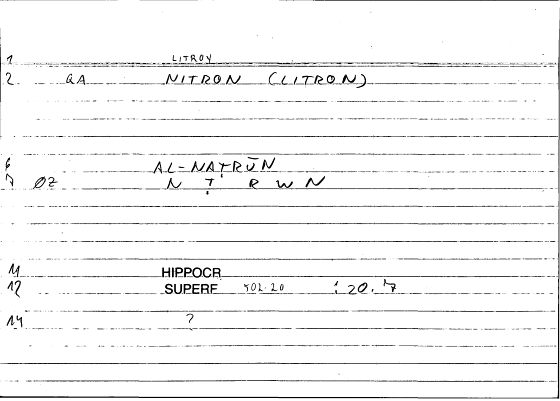 1 LITROY
2 GA NITRON (LITRON)
6 AL-NAṬRŪN
7 ØZ N Ṭ R W N
11 HIPPOCR
12 SUPERF 502.20 : 20.7
14 ?